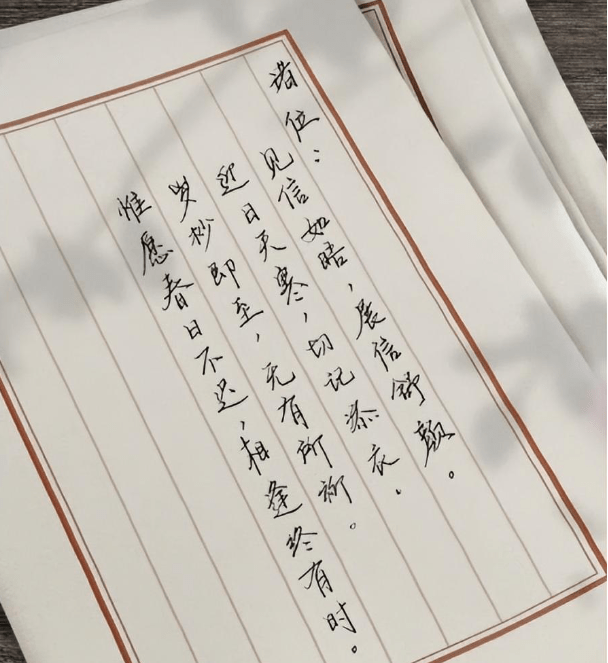 诸位：
见信如晤，展信舒颜。
近日天寒，切记添衣。
岁杪即至，无有所祈。
惟愿春日不迟，相逢终有时。